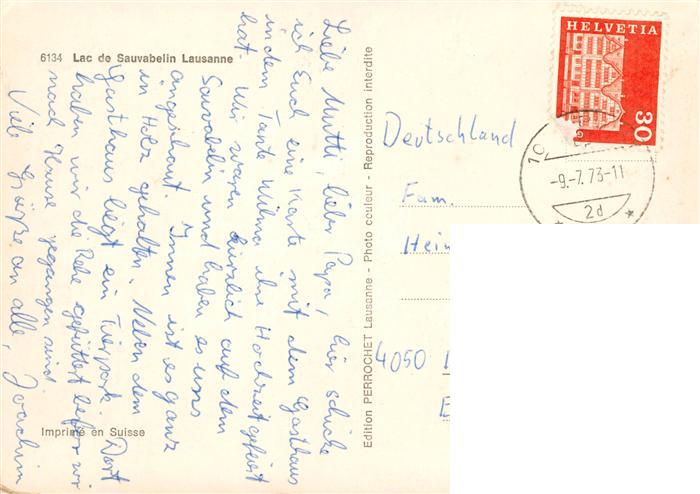 6134 Lac de Sauvabelin Lausanne
Liebe Mutti, lieber Papa, hier schicke
ich Euch eine Karte mit dem Gasthaus
in dem Tante Wilma ihre Hochzeit gefeiert
hat. Wir waren kürzlich auf dem
Sauvabelin und haben es uns
angeschaut. Innen ist es ganz
in Holz gehalten. Neben dem
Gasthaus liegt ein Tierpark. Dort
haben wir die Rehe gefüttert bevor wir
nach Hause gegangen sind.
Viele Grüße an alle, Joachim
Imprimé en Suisse
Edition PERROCHET Lausanne - Photo couleur - Reproduction interdite
HELVETIA
30
10
-9.-7.73-11
2d
Deutschland
Fam.
Hein
4050